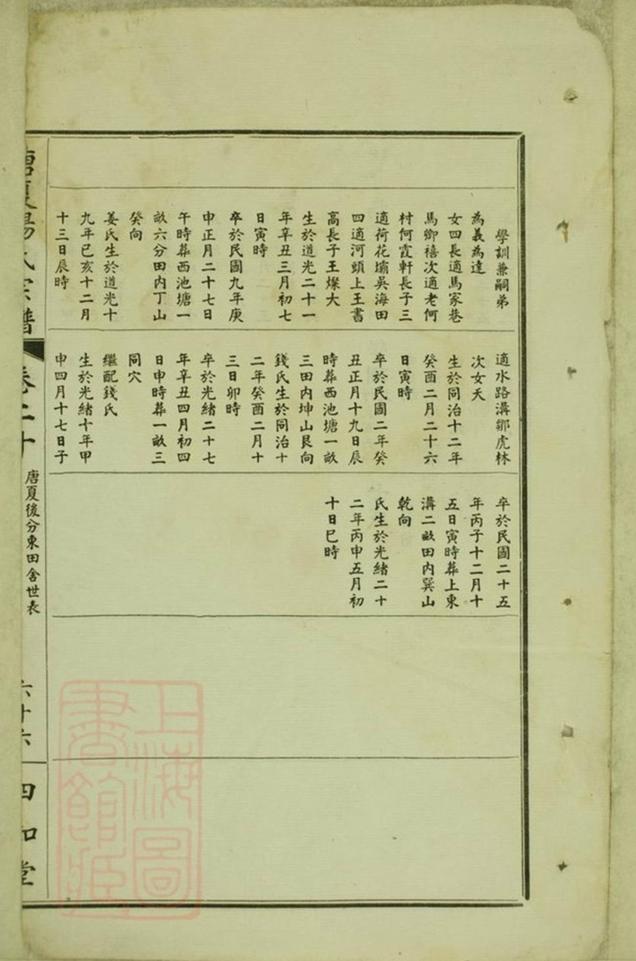 學訓兼嗣弟
為義為達
女四長適馬家巷
馬御禧次適老何
村何霞軒長子三
適荷花壩吳海田
四適河頭上王書
高長子王燦大
生於道光二十一
年辛丑三月初七
日寅時
卒於民國九年庚
申正月二十七日
午時葬西池塘一
畝六分田內丁山
癸向
姜氏生於道光十
九年己亥十二月
十三日辰時
適水路溝鄒虎林
次女夭
生於同治十二年
癸酉二月二十六
日寅時
卒於民國二年癸
丑正月十九日辰
時葬西池塘一畝
三田內坤山艮向
錢氏生於同治十
二年癸酉二月十
三日卯時
卒於光緒二十七
年辛丑四月初四
日申時葬一畝三
同穴
繼配錢氏
生於光緒十年甲
申四月十七日子
卒於民國二十五
年丙子十二月十
五日寅時葬上東
溝二畝田內巽山
乾向
氏生於光緒二十
二年丙申五月初
十日巳時
氏宗譜
卷二十
唐夏後分東田舍世表
六十六
四和堂
上海圖
書館藏